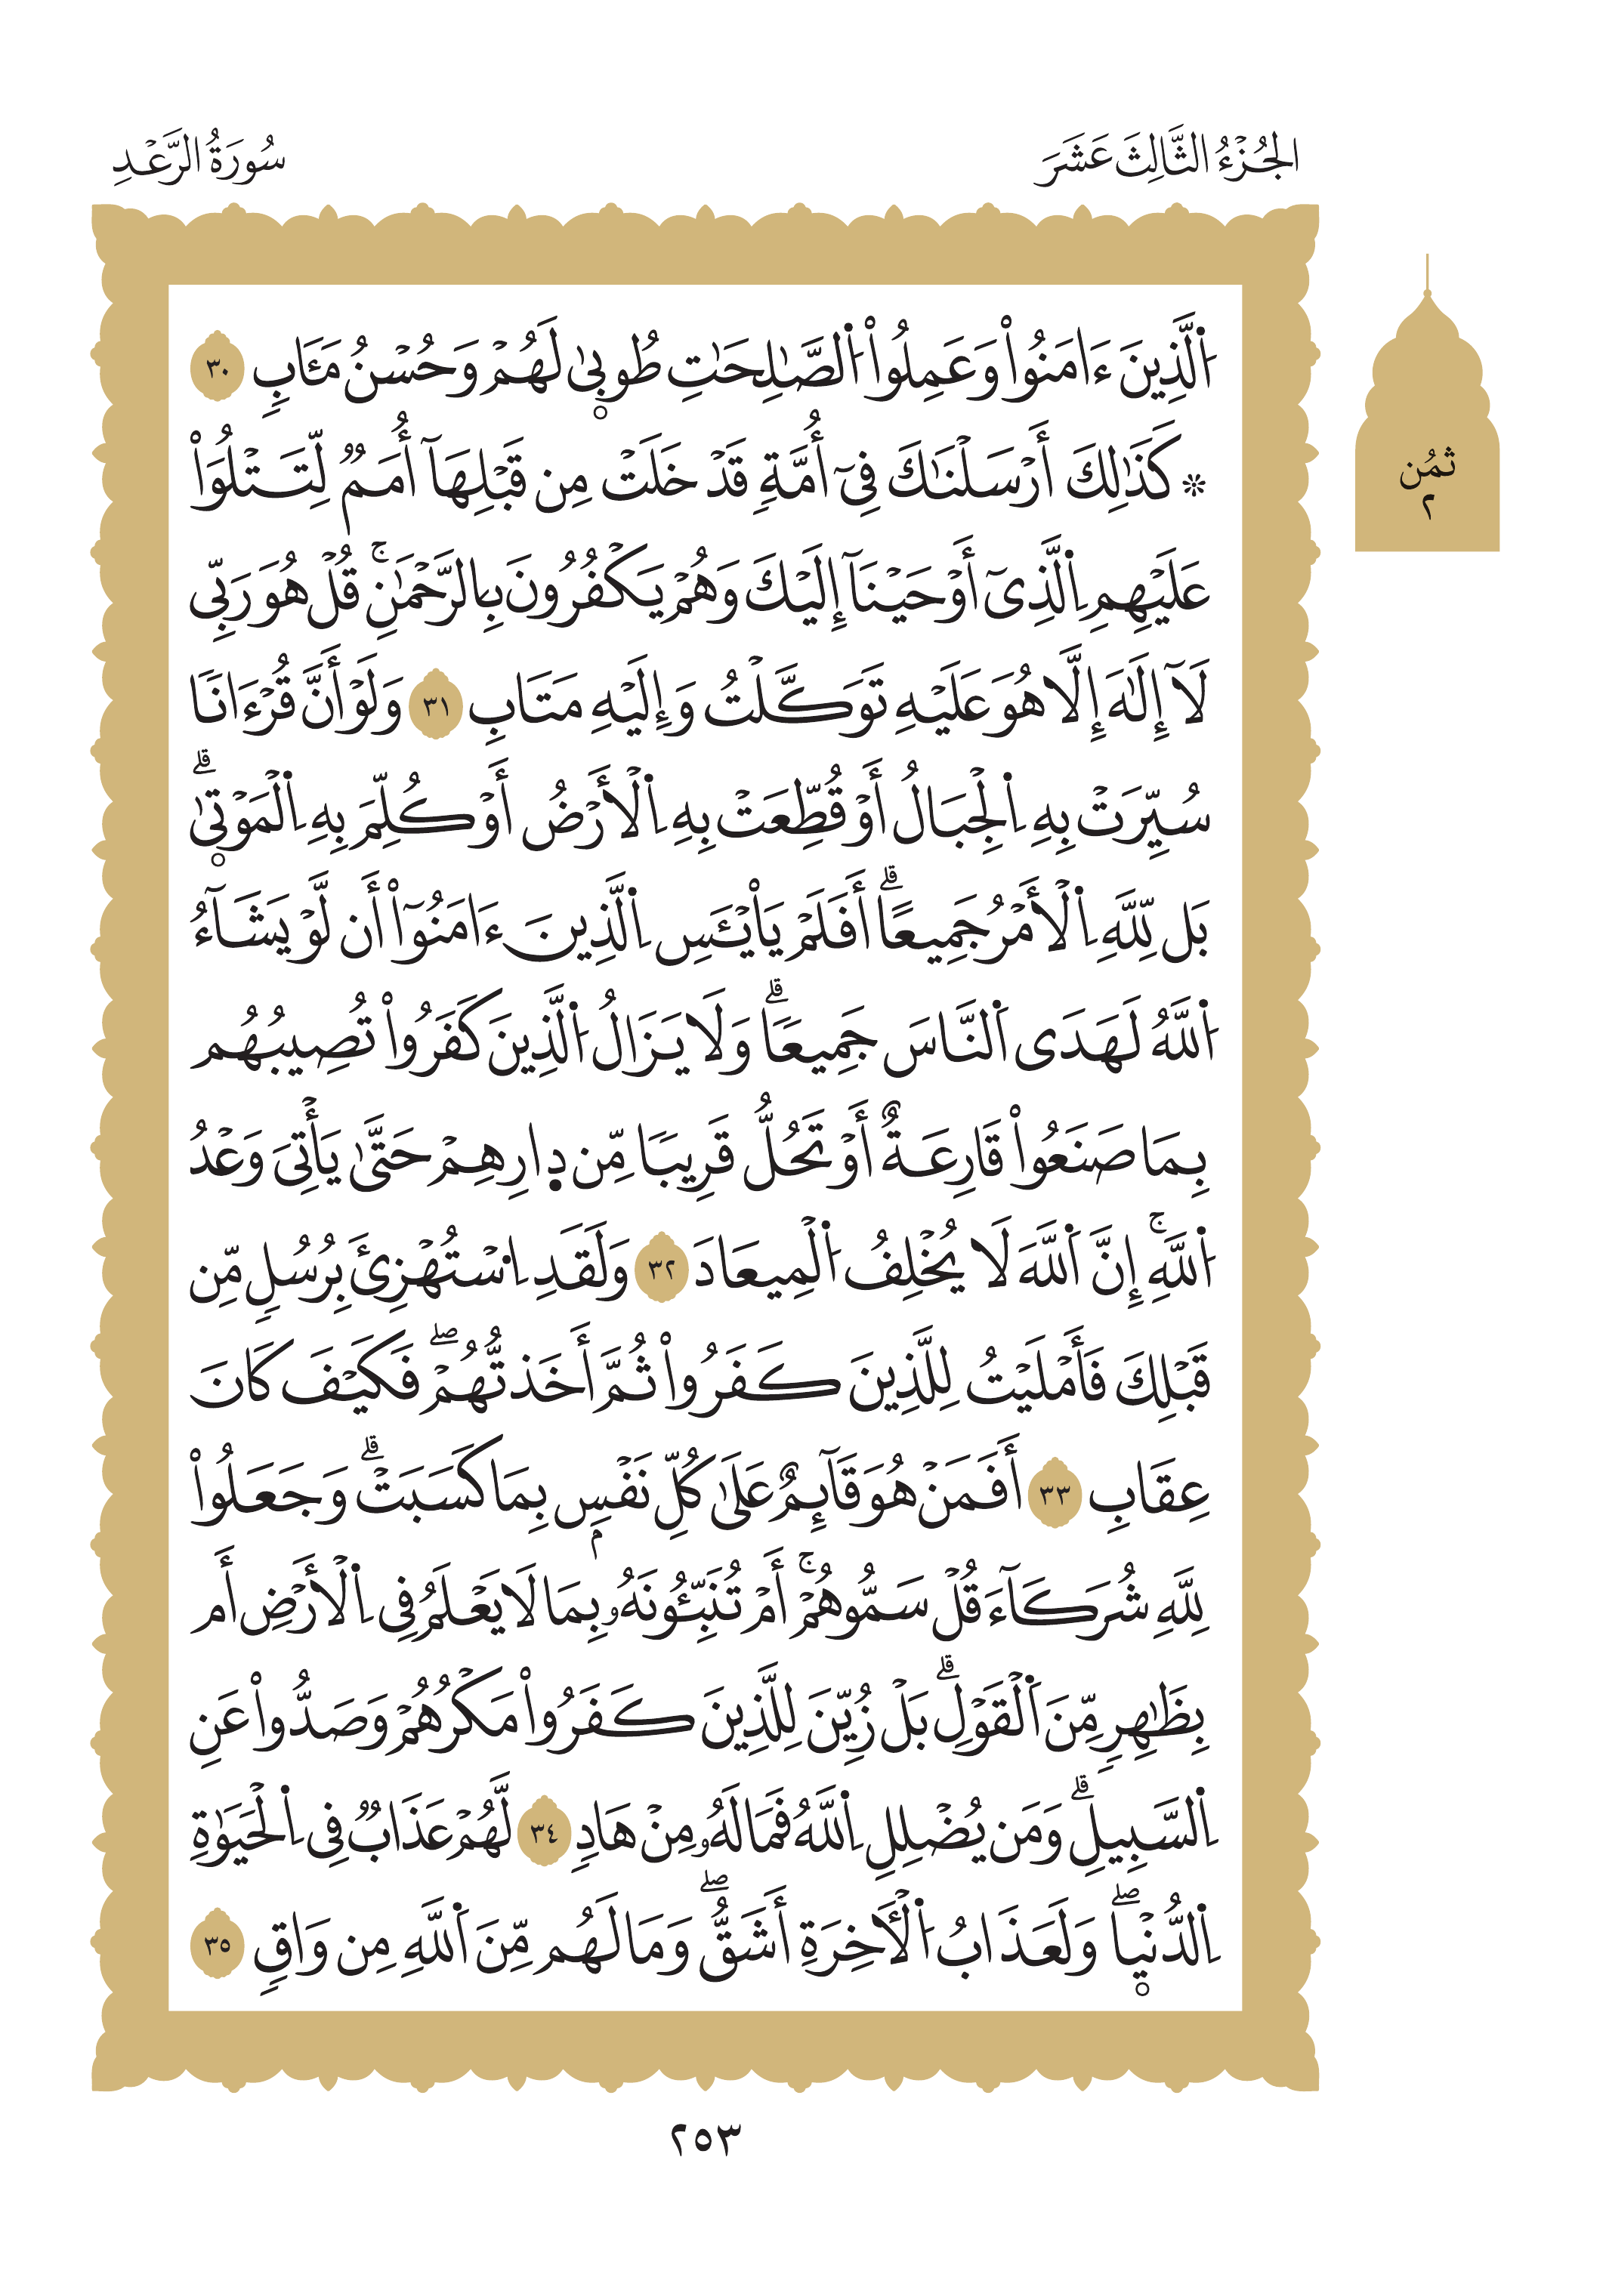 الجُزْءُ الثَّالِثَ عَشَرَ
سُورَةُ الرَّعْدِ
ثمُن
٢
اَ۬لذِينَ ءَامَنُواْ وَعَمِلُواْ اُ۬لصَّٰلِحَٰتِ طُوب۪ىٰ لَهُمْ وَحُسْنُ مَـَٔابٖ ٣٠
۞ كَذَٰلِكَ أَرْسَلْنَٰكَ فِىٓ أُمَّةٖ قَدْ خَلَتْ مِن قَبْلِهَآ أُمَمٞ لِّتَتْلُوَاْ
عَلَيْهِمِ اِ۬لذِىٓ أَوْحَيْنَآ إِلَيْكَ وَهُمْ يَكْفُرُونَ بِالرَّحْمَٰنِۚ قُلْ هُوَ رَبِّى
لَآ إِلَٰهَ إِلَّا هُوَ عَلَيْهِ تَوَكَّلْتُ وَإِلَيْهِ مَتَابِ ٣١ وَلَوْ أَنَّ قُرْءَانٗا
سُيِّرَتْ بِهِ اِ۬لْجِبَالُ أَوْ قُطِّعَتْ بِهِ اِ۬لْأَرْضُ أَوْ كُلِّمَ بِهِ اِ۬لْمَوْت۪ىٰۗ
بَل لِّلَّهِ اِ۬لْأَمْرُ جَمِيعًاۗ أَفَلَمْ يَاْيْـَٔسِ اِ۬لذِينَ ءَامَنُوٓاْ أَن لَّوْ يَشَآءُ
اُ۬للَّهُ لَهَدَى اَ۬لنَّاسَ جَمِيعٗاۗ وَلَا يَزَالُ اُ۬لذِينَ كَفَرُواْ تُصِيبُهُم
بِمَا صَنَعُواْ قَارِعَةٌ أَوْ تَحُلُّ قَرِيبٗا مِّن د۪ارِهِمْ حَتَّىٰ يَأْتِىَ وَعْدُ
اُ۬للَّهِۚ إِنَّ اَ۬للَّهَ لَا يُخْلِفُ اُ۬لْمِيعَادَ ٣٢ وَلَقَدِ اِ۟سْتُهْزِئَ بِرُسُلٖ مِّن
قَبْلِكَ فَأَمْلَيْتُ لِلَّذِينَ كَفَرُواْ ثُمَّ أَخَذتُّهُمْۖ فَكَيْفَ كَانَ
عِقَابِ ٣٣ أَفَمَنْ هُوَ قَآئِمٌ عَلَىٰ كُلِّ نَفْسِۭ بِمَا كَسَبَتْۗ وَجَعَلُواْ
لِلَّهِ شُرَكَآءَ قُلْ سَمُّوهُمْۚ أَمْ تُنَبِّـُٔونَهُۥ بِمَا لَا يَعْلَمُ فِى اِ۬لْأَرْضِ أَم
بِظَٰهِرٖ مِّنَ اَ۬لْقَوْلِۗ بَلْ زُيِّنَ لِلَّذِينَ كَفَرُواْ مَكْرُهُمْ وَصَدُّواْ عَنِ
اِ۬لسَّبِيلِۗ وَمَن يُضْلِلِ اِ۬للَّهُ فَمَا لَهُۥ مِنْ هَادٖ ٣٤ لَّهُمْ عَذَابٞ فِى اِ۬لْحَيَوٰةِ
اِ۬لدُّنْي۪اۖ وَلَعَذَابُ اُ۬لْأٓخِرَةِ أَشَقُّۖ وَمَا لَهُم مِّنَ اَ۬للَّهِ مِن وَاقٖ ٣٥
٢٥٣